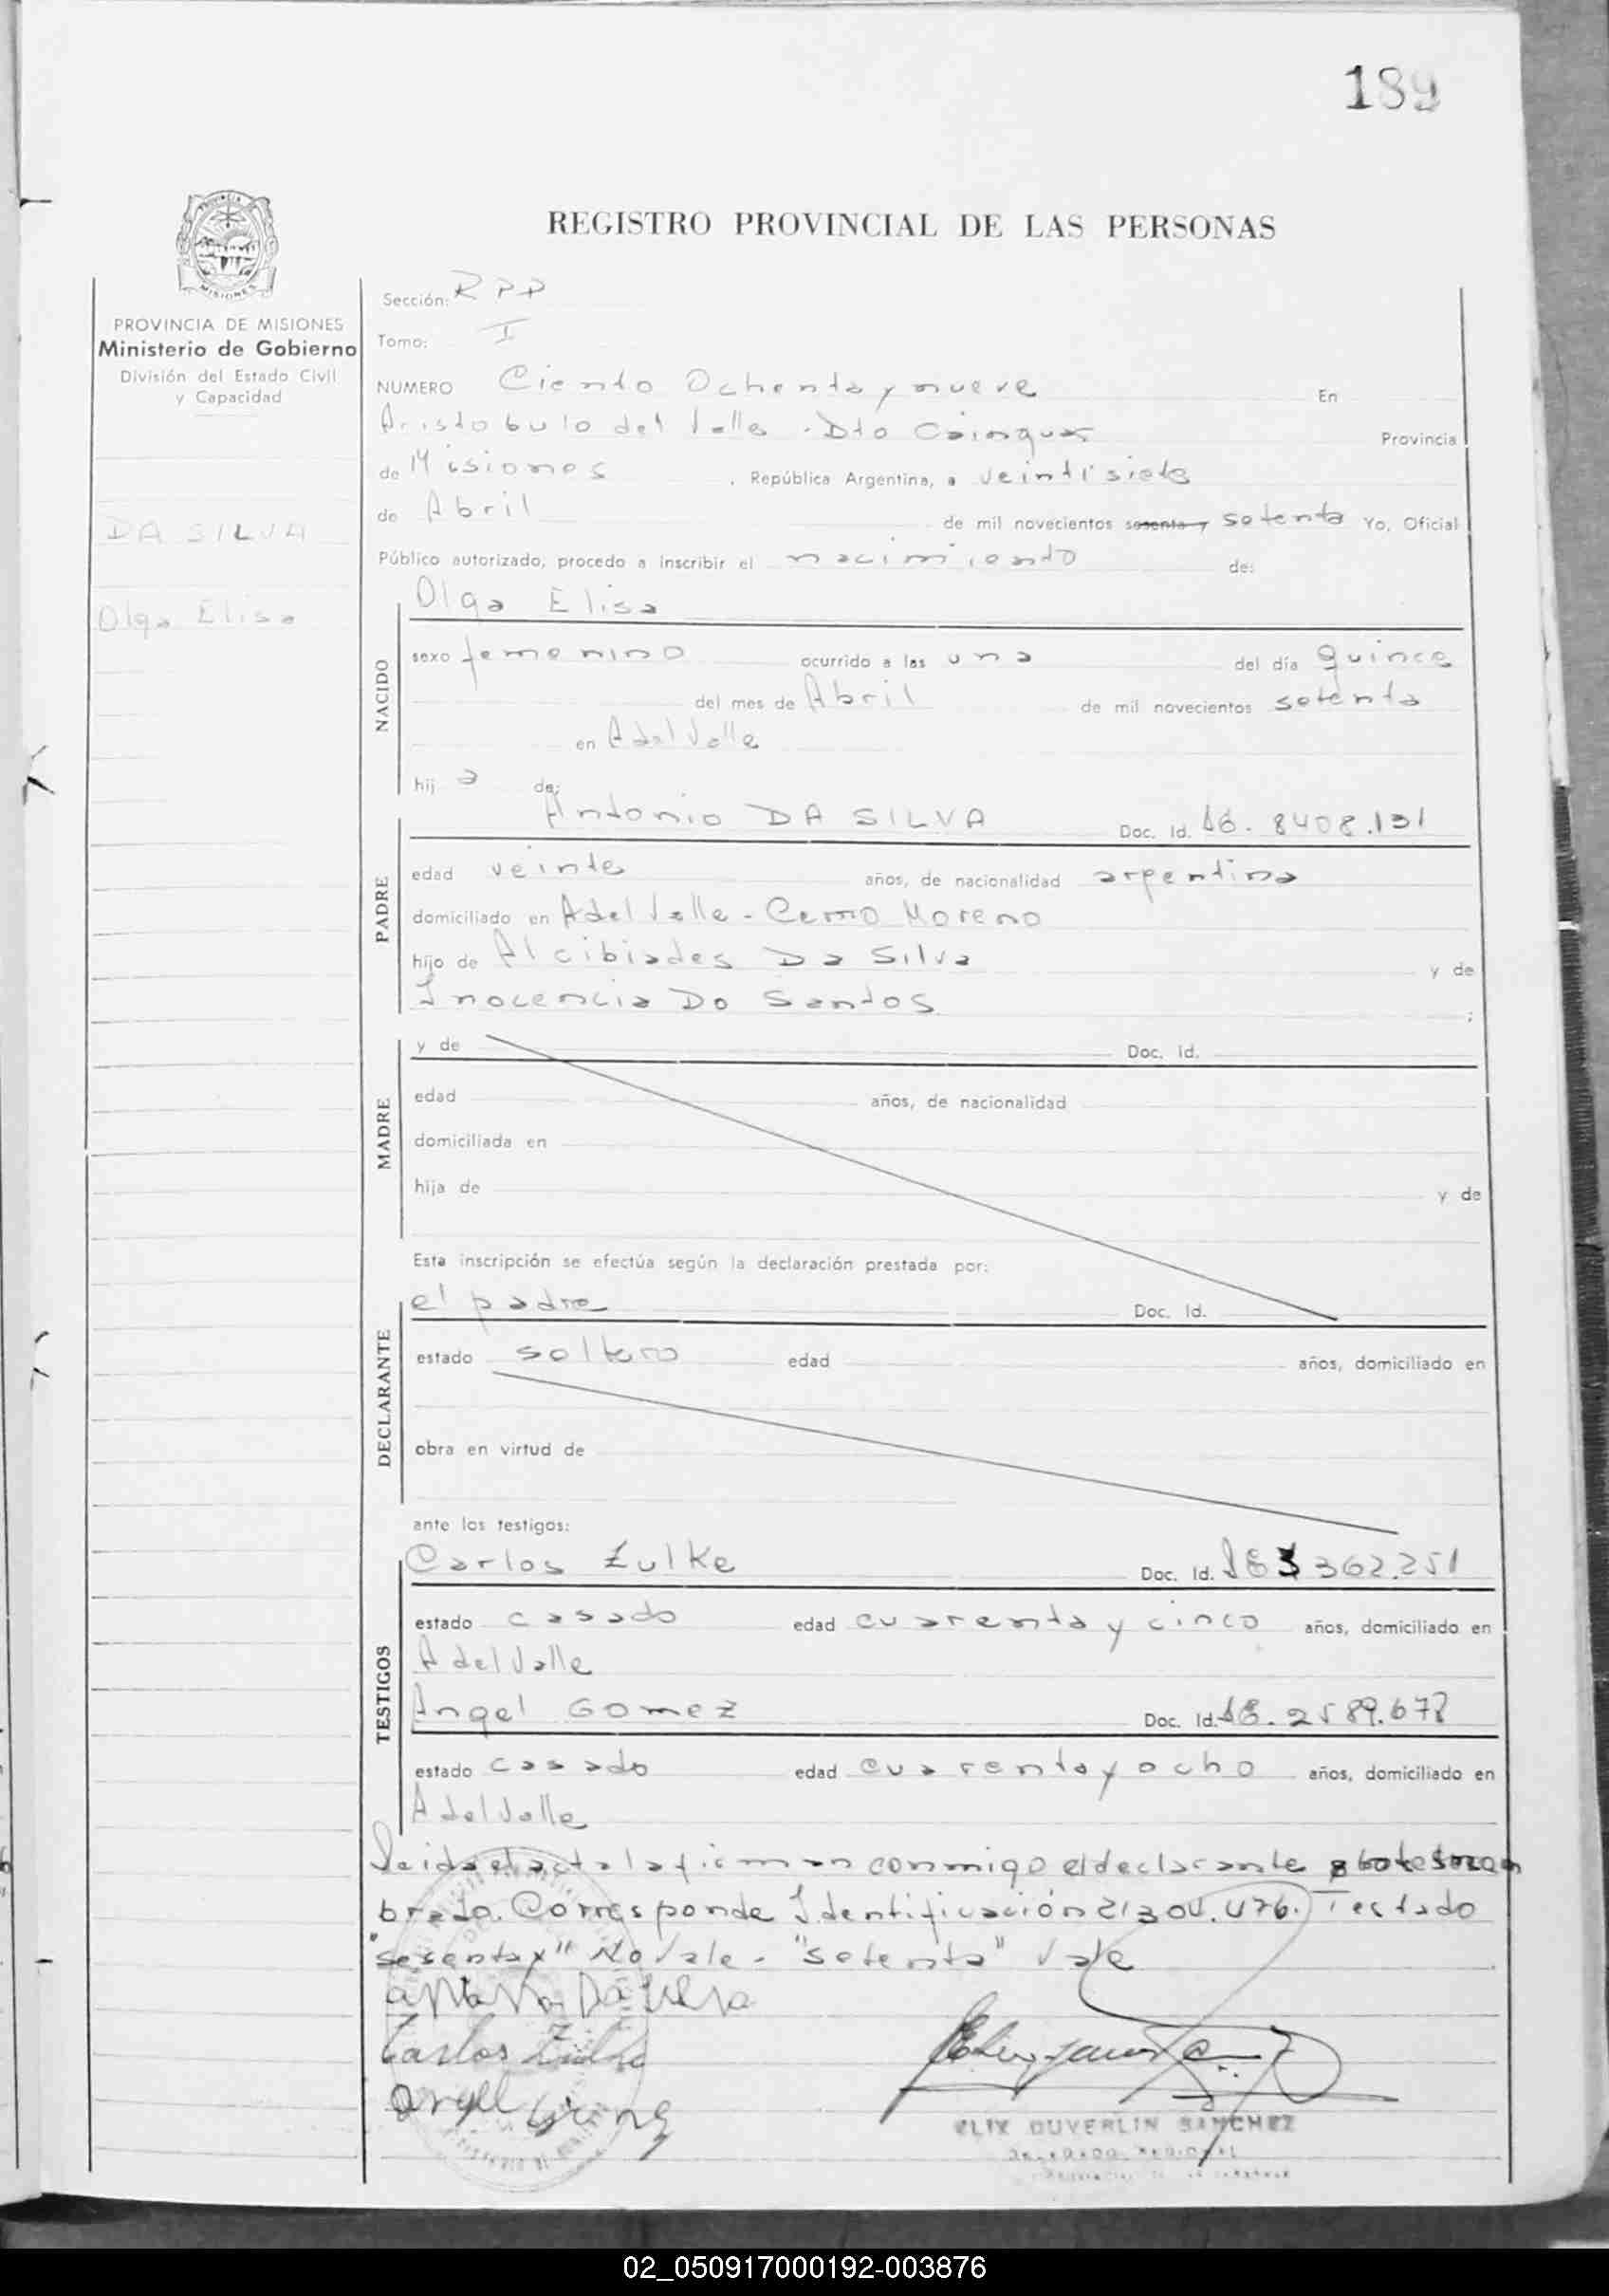 189
REGISTRO PROVINCIAL DE LAS PERSONAS
PROVINCIA DE MISIONES
Ministerio de Gobierno
División del Estado Civil
y Capacidad
DA SILVA
Olga Elisa
Sección: RPP
Tomo: I
NUMERO Ciento Ochenta y nueve En
Aristobulo del Valle - Dto Cainguas Provincia
de Misiones , República Argentina, a veintisiete
de Abril de mil novecientos sesenta y setenta Yo, Oficial
Público autorizado, procedo a inscribir el nacimiento de:
NACIDO
Olga Elisa
sexo femenino ocurrido a las una del día quince
del mes de Abril de mil novecientos setenta
en A del Valle
hij a de:
PADRE
Antonio DA SILVA Doc. Id. 8408.131
edad veinte años, de nacionalidad argentina
domiciliado en A del Valle - Cerro Moreno
hijo de Alcibiades Da Silva y de
Inocencia Do Santos ;
MADRE
y de Doc. Id.
edad años, de nacionalidad
domiciliada en
hija de y de
Esta inscripción se efectúa según la declaración prestada por:
DECLARANTE
el padre Doc. Id.
estado soltero edad años, domiciliado en
obra en virtud de
ante los testigos:
TESTIGOS
Carlos Zulke Doc. Id. 362.251
estado casado edad cuarenta y cinco años, domiciliado en
A del Valle
Angel Gomez Doc. Id. 2589.678
estado casado edad cuarenta y ocho años, domiciliado en
A del Valle
Leida el acta la firman conmigo el declarante
Corresponde Identificación 21304.476. Testado
"sesenta y" No Vale - "setenta" Vale
Carlos Zulke
ELIX DUVERLIN SANCHEZ
DELEGADO REGIONAL
02_050917000192-003876